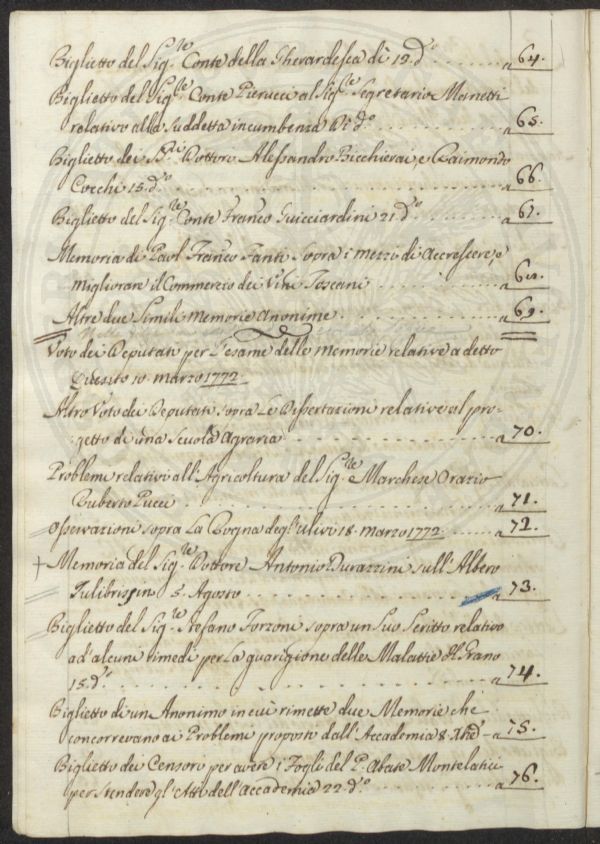 Biglietto del Sig.le Conte della Gherardesca di 19. d.o ........ a 64.
Biglietto del Sig.le Conte Pierucci al Sig.le Segretario Manetti
relativo alla suddetta incumbenza di d.o ........ a 65.
Biglietto dei SS.ri Dottori Alessandro Bicchierai, e Raimondo
Cocchi 15. d.o ........ a 66.
Biglietto del Sig.le Conte Franco Guicciardini 21 d.o ........ a 67.
Memoria di Paol Franco Fanti sopra i mezzi di Accrescere, e
migliorare il Commercio dei Vini Toscani ........ a 68.
Altre due Simili memorie anonime ........ a 69.
Voto dei Deputati per l'esame delle memorie relative a detto
Quesito 10. marzo 1772
Altro Voto dei Deputati sopra Le Dissertazioni relative al pro-
getto di una Scuola Agraria ........ a 70.
Problemi relativi all'Agricoltura del Sig.le Marchese Orazio
Ruberto Pucci ........ a 71.
Osservazioni sopra La Rogna degl'ulivi 18. marzo 1772 ........ a 72.
+ Memoria del Sig.le Dottore Antonio Durazzini sull'Albero
5. Agosto ........ a 73.
Biglietto del Sig.le Stefano Forzoni sopra un Suo Scritto relativo
ad alcuni rimedi per La guarigione delle Malattie del Grano
15. d.o ........ a 74.
Biglietto di un Anonimo in cui rimette due Memorie che
concorrevano ai Problemi proposti dall'Accademia 8. Xbe a 75.
Biglietto dei Censori per avere i Fogli del P. Abate Montelatici
per stendere gl'Atti dell'Accademia 22. d.o ........ a 76.